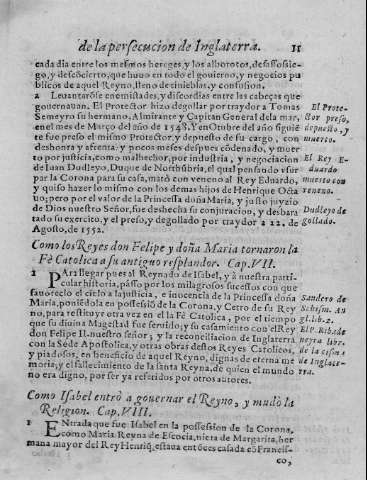 de la persecucion de Inglaterra. 11
cada dia entre los mesmos hereges, y los alborotos, desassossie-
go, y descōcierto, que huuo en todo el gouierno, y negocios pu
blicos de aquel Reyno, lleno de tinieblas, y confusion.
2 Leuantarōse enemistades, y discordias entre las cabeças que
gouernauan. El Protector hizo degollar por traydor a Tomas
Semeyro su hermano, Almirante y Capitan General dela mar,
en el mes de Março del año de 1548. Y en Otubre del año siguiē
te fue preso el mismo Protector, y depuesto de su cargo, con
deshonra y afrenta: y pocos meses despues cōdenado, y muer
to por justicia, como malhechor, por industria, y negociacion
de Iuan Dudleyo, Duque de Northūbria, el qual pensando fue
por la Corona para su casa, matò con veneno al Rey Eduardo,
y quiso hazer lo mismo con los demas hijos de Henrique Octa
uo; pero por el valor de la Princessa doña Maria, y justo juyzio
de Dios nuestro Señor, fue deshecha su conjuracion, y desbara
tado su exercito, y el preso, y degollado por traydor a 22. de
Agosto, de 1552.
El Prote-
ctor preso,
depuesto, y
muerto.
El Rey E-
duardo
muerto con
veneno.
Dudleyo de
gollado.
Como los Reyes don Felipe y doña Maria tornaron la
Fè Catolica a su antiguo resplandor. Cap. VII.
1 PAra llegar pues al Reynado de Isabel, y à nuestra parti-
cular historia, passo por los milagrosos sucessos con que
fauorecio el cielo a la justicia, e inocencia de la Princessa doña
Maria, poniēdola en possessiō de la Corona, y Cetro de su Rey
no, para restituyr otra vez en el la Fè Catolica, por el tiempo
que su diuina Magestad fue seruido; y su casamiento con el Rey
don Felipe II. nuestro señor; y la reconciliacion de Inglaterra
con la Sede Apostolica, y otras obras destos Reyes Catolicos,
y piadosos, en beneficio de aquel Reyno, dignas de eterna me
moria, y el fallecimiento de la santa Reyna, de quien el mundo
no era digno, por ser ya referidos por otros autores.
Sandero de
Schism. An
gl. lib. 2.
El P. Ribade
neyra libr.
de la cisma
de Inglate-
rra.
Como Isabel entrò a gouernar el Reyno, y mudò la
Religion. Cap. VIII.
1 ENtrada que fue Isabel en la possession de la Corona,
como Maria Reyna de Escocia, nieta de Margarita, her
mana mayor del Rey Henriq̄, estaua entōces casada cō Francis-
co,